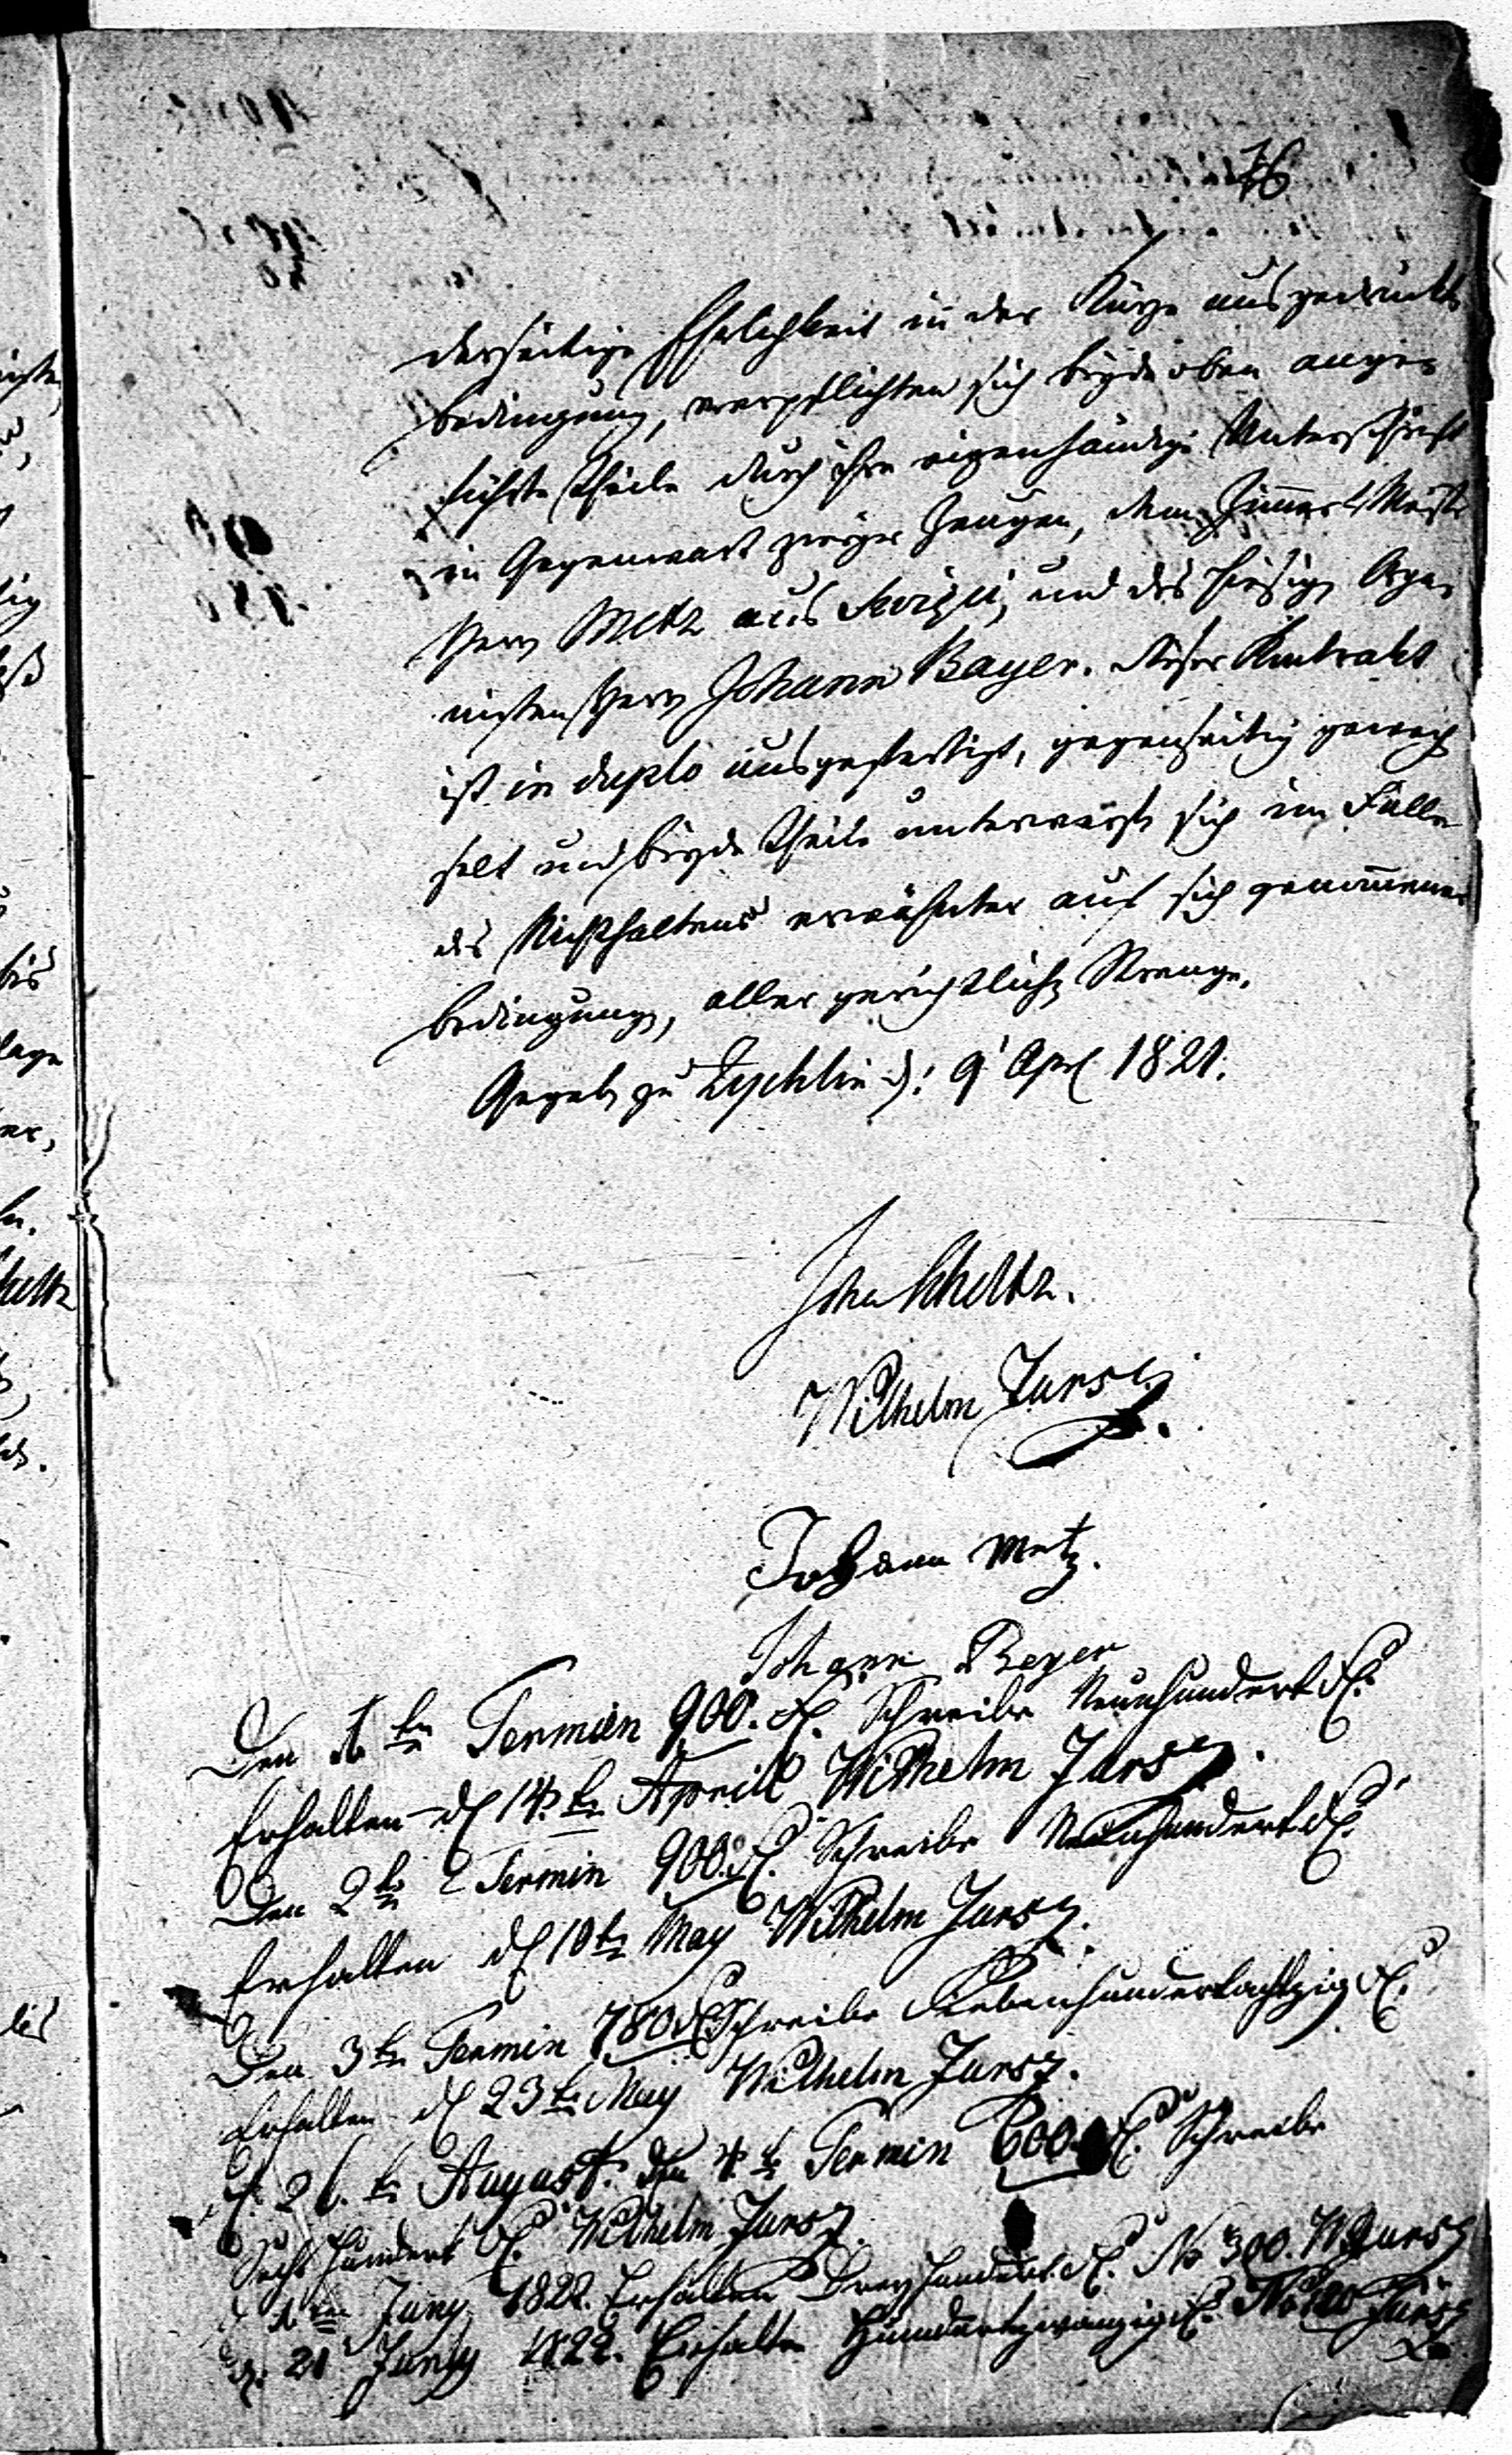 76
derseitige Ehrlichkeit in der Kürze ausgedrückte
Bedingung, verpflichten sich beyde oben ange-
führte Theile durch ihre eigenhändige Unterschrift
in Gegenwart zweyer Zeugen, dem Zimmer Meister
Herrn Metz aus und des hiesigen Orga-
nisten Herrn Johann Bayer. Dieser Kontrakt
ist in duplo ausgefertigt, gegenseitig gewech-
selt und beyde Theile unterwerfen sich im Falle
des Nichthaltens erwähnter auf sich genommener
Bedingungen, aller gerichtlichen Strenge.
Gegeben zu Zychlin d: 9' Apr 1821.
Wilhelm Jursz
Johann Metz.
Johann Beyer
Den 1 ten Termien 900. fl. Schreibe Neunhundert fl.
Erhalten d 14. ten Aprill Wilhelm Jursz.
Den 2 te Termin 900 fl. Schreibe Neunhundert fl.
Erhalten d 10 ten May Wilhelm Jursz.
Den 3 ten Termin 780 fl Schreibe Siebenhundertachtzig fl.
Erhalten d 23 ten May Wilhelm Jursz.
d. 26. ten August. den 4. te Termin 600 fl. Schreibe
Sechshundert fl. Wilhelm Jursz.
d 1 ten Juny 1822. Erhalten Dreyhundert fl. No 300. W Jursz
d. 21 Juny 1822. Erhalten Hundertzwanzig fl. No 120 Jursz